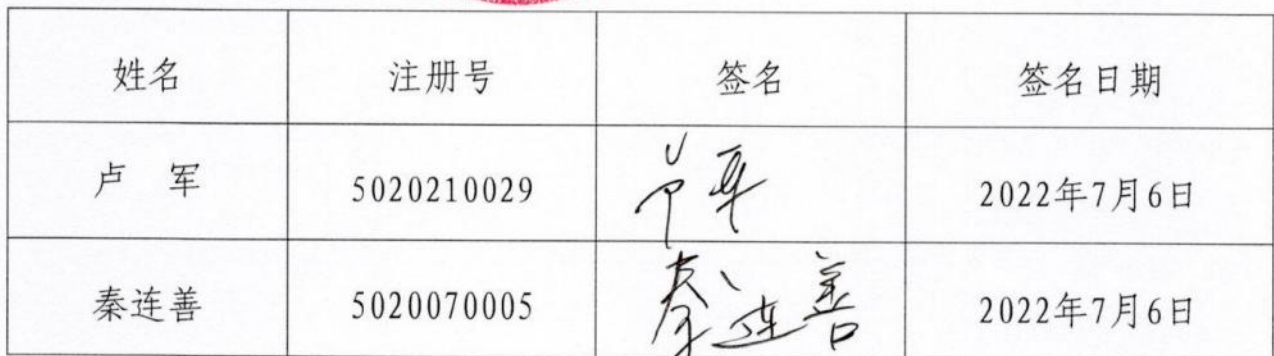 姓名 注册号 签名 签名日期
卢 军 5020210029 2022年7月6日
秦连善 5020070005 秦连善 2022年7月6日